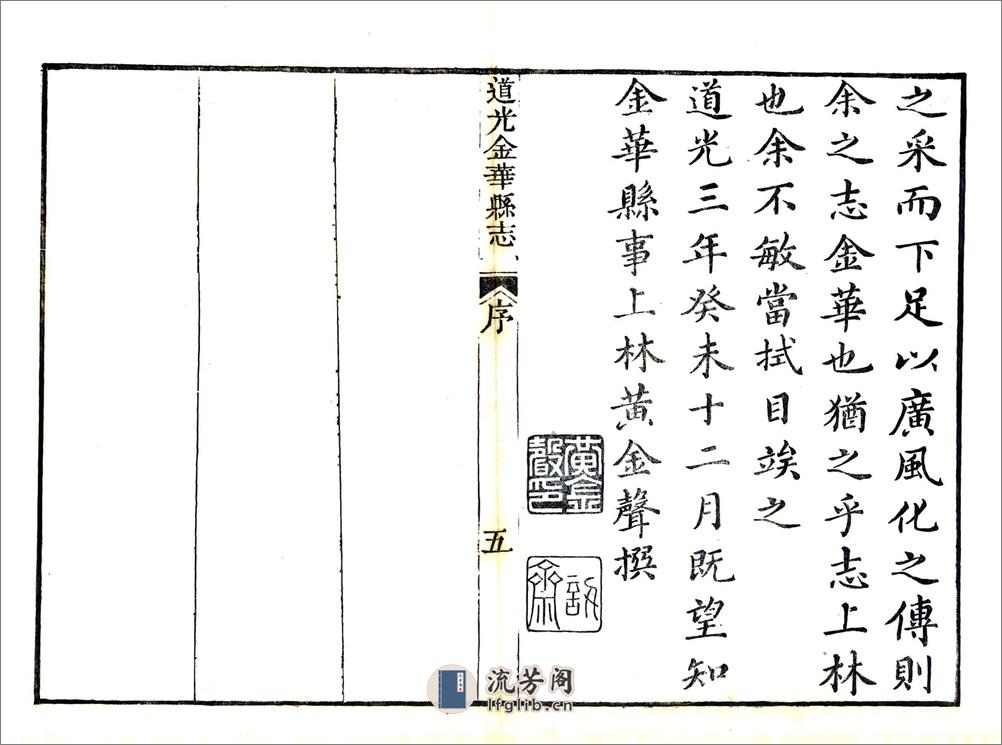 之采而下足以廣風化之傳則
余之志金華也猶之乎志上林
也余不敏當拭目竢之
道光三年癸未十二月既望知
金華縣事上林黃金聲撰
黃金聲印
道光金華縣志
序
五
流芳阁
lfglib.cn